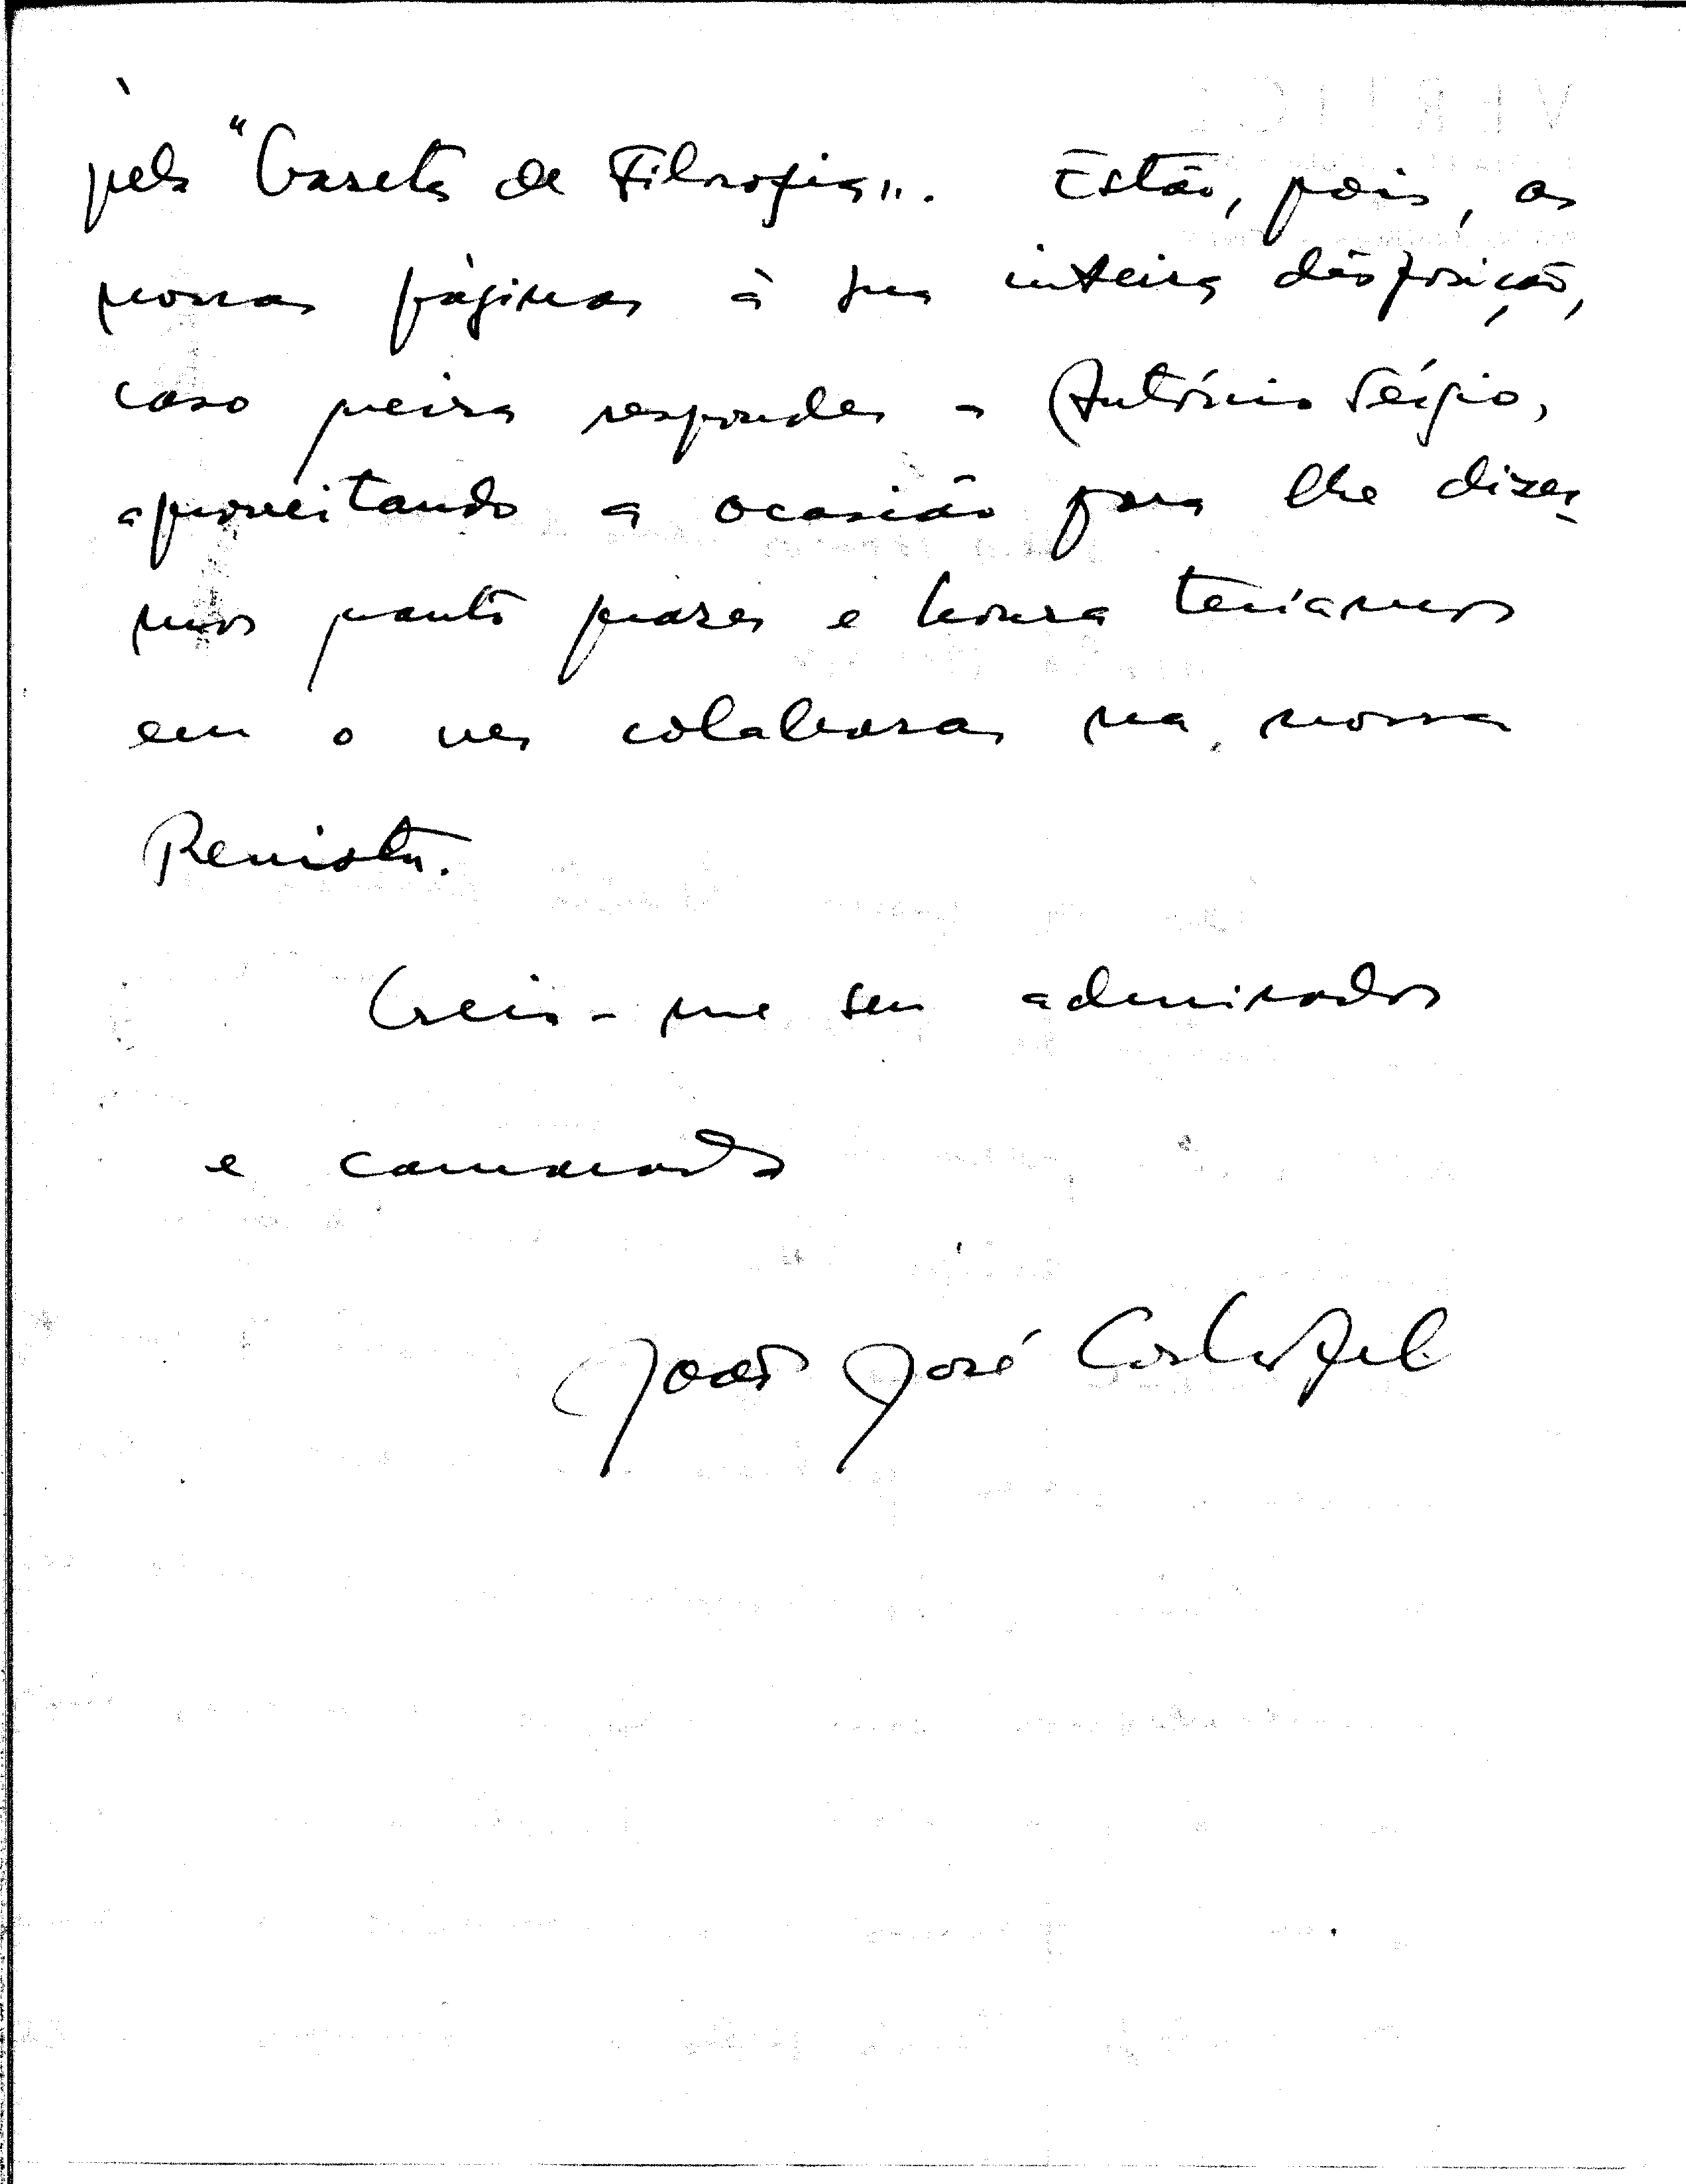 pela "Gazeta de Filosofia". Estão, pois, as
nossas páginas à sua inteira disposição,
caso queira responder a António Sérgio,
aproveitando a ocasião para lhe dizer-
mos quanto prazer e honra teríamos
em o ver colaborar na nossa
Revista.
Creia-me seu admirador
e camarada
João José Cochofel